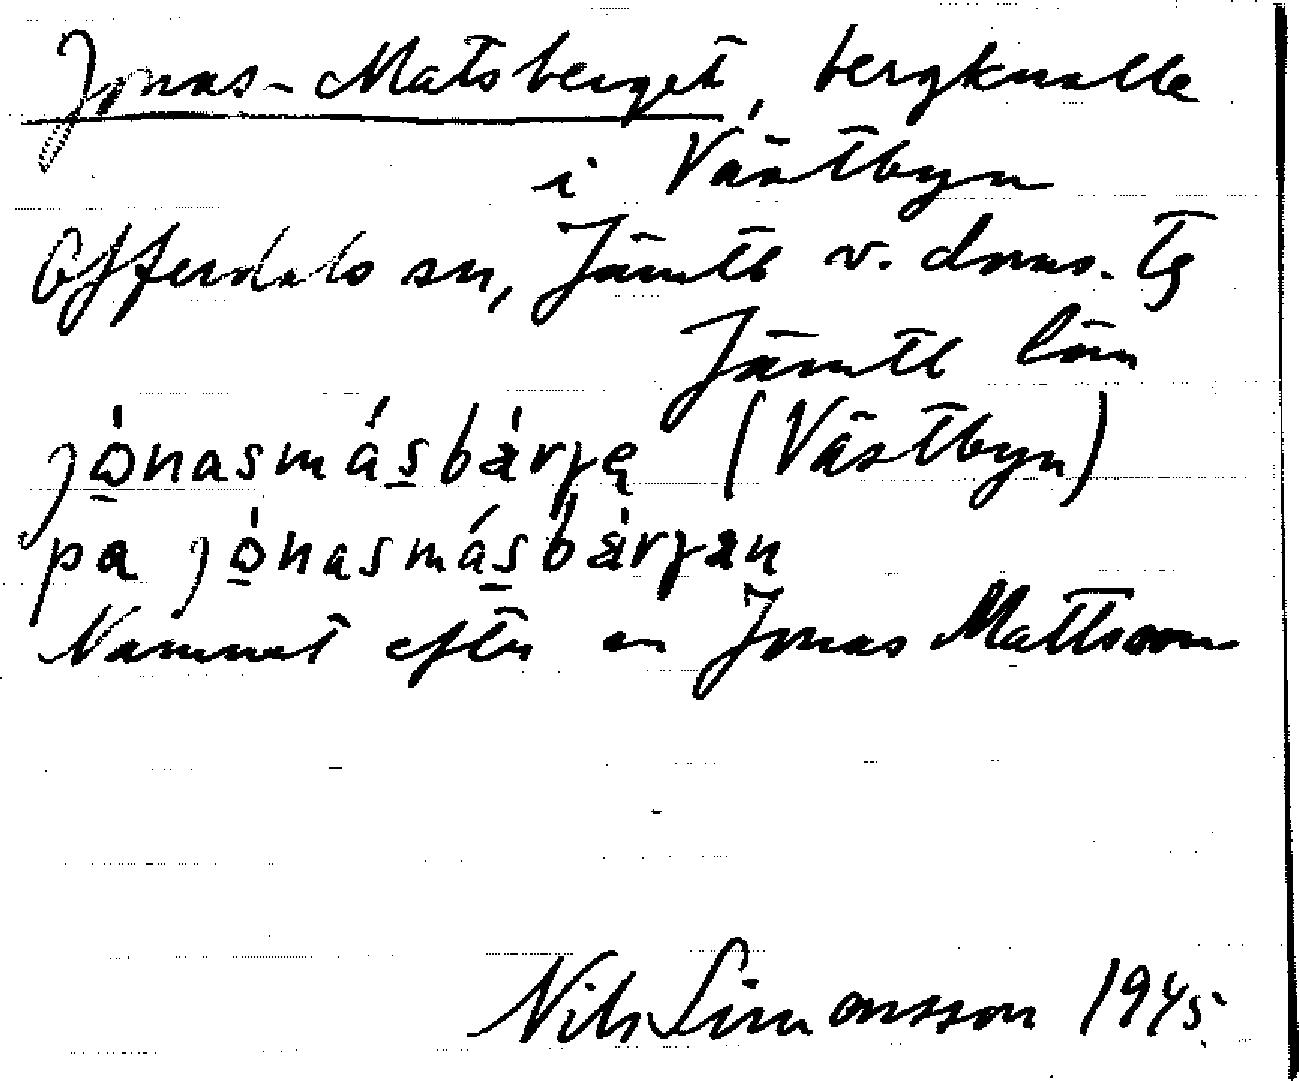 Jonas-Matsberget, bergknalle
i Västbyn
Offerdals sn, Jämtl v. doms. tg
Jämtl län
jònasmásbàrję (Västbyn)
pa jònasmásbàrjan
Namnet efter en Jonas Mattsson
Nils Simonsson 1945